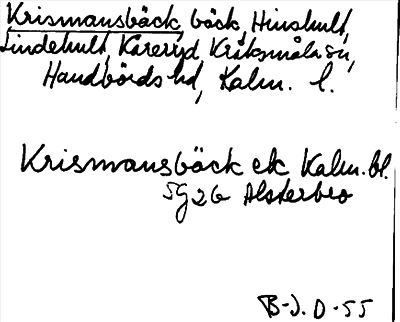 Krismansbäck, bäck, Hinshult,
Lindehult, Kåreryd, Kråksmåla sn,
Handbörds hd, Kalm. l.
Krismansbäck ek Kalm. bl.
5G2G Alsterbro
B-J. D-55